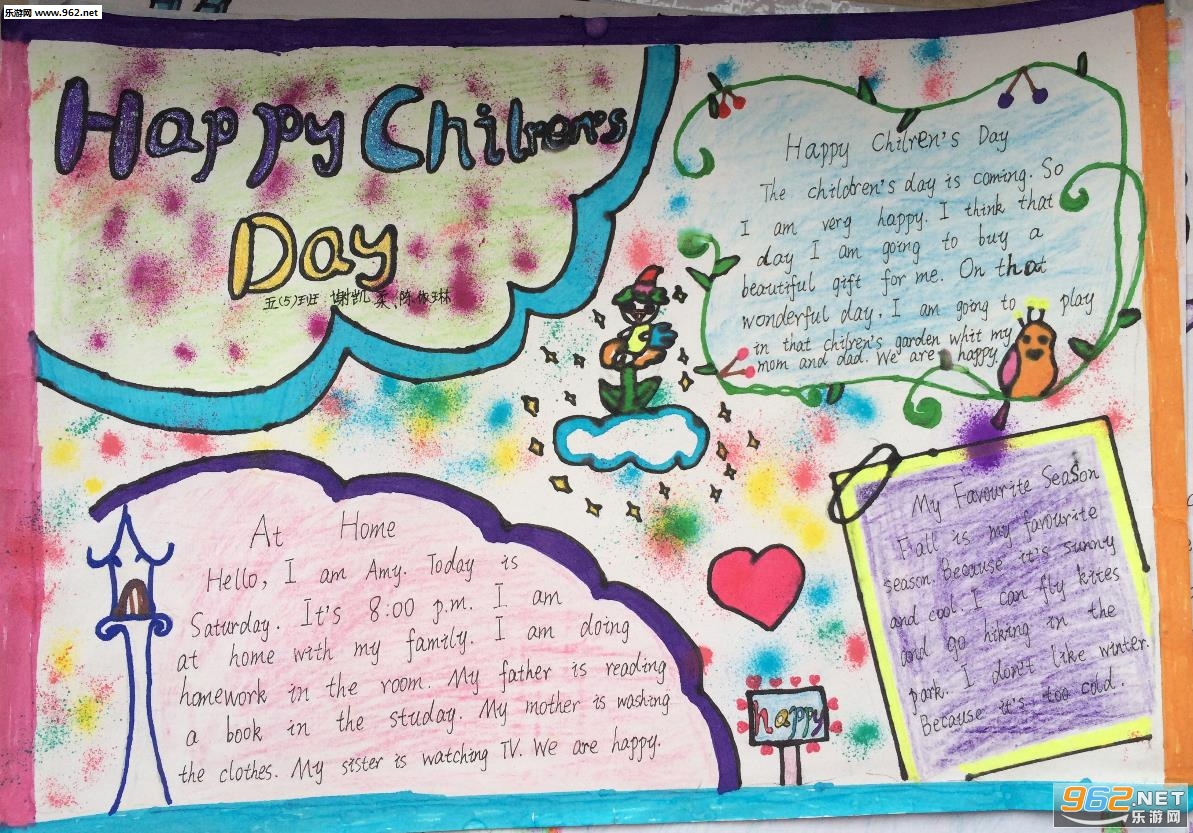 乐游网 www.962.net
Happy Chilren's
Day
五(5)班 谢凯柔 陈依琳
Happy Chilren's Day
The children's day is coming. So
I am very happy. I think that
day I am going to buy a
beautiful gift for me. On that
wonderful day, I am going to play
in that chilren's garden whit my
mom and dad. We are happy.
At Home
Hello, I am Amy. Today is
Saturday. It's 8:00 p.m. I am
at home with my family. I am doing
homework in the room. My father is reading
a book in the studay. My mother is washing
the clothes. My sister is watching TV. We are happy.
My Favourite Season
Fall is my favourite
season. Because it's sunny
and cool. I can fly kites
and go hiking in the
park. I don't like winter.
Because it's too cold.
happy
962.NET
乐游网